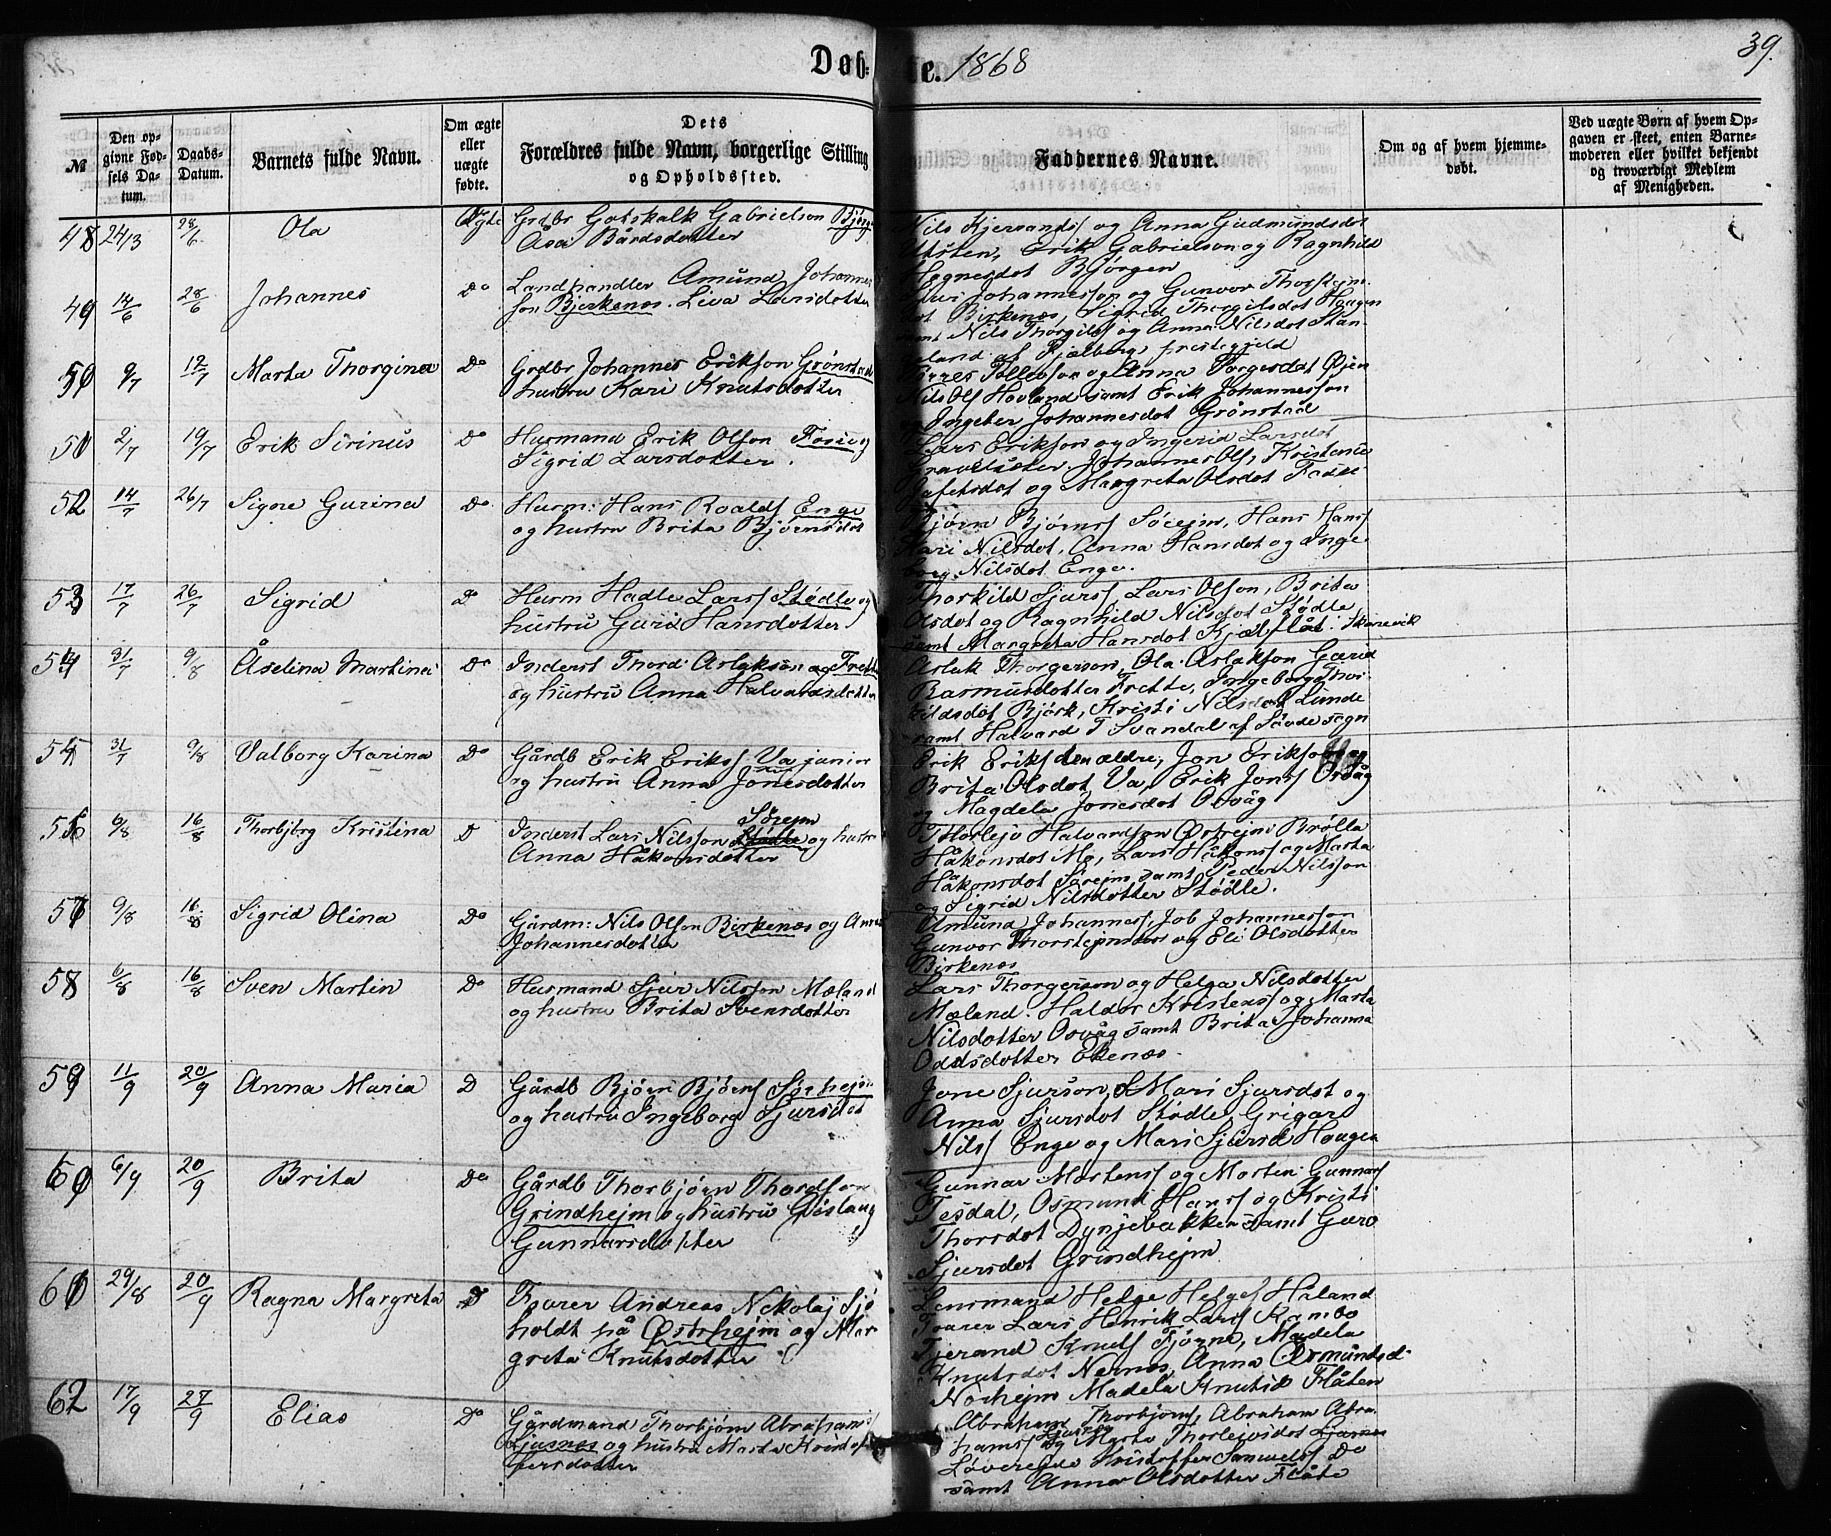 Døb- te. 1868
39.
№
Den opgivne Fødsels Datum.
Daabs-Datum.
Barnets fulde Navn.
Om ægte eller uægte fødte.
Dets Forældres fulde Navn, borgerlige Stilling og Opholdssted.
Faddernes Navne.
Om og af hvem hjemmedøbt.
Ved uægte Børn af hvem Opgaven er skeet, enten Barnemoderen eller hvilket bekjendt og troværdigt Medlem af Menigheden.
48 24/3 28/6 Ola Ægte Grdbr Gotskalk Gabrielson Bjørg
Åsa Bårdsdotter
Nils Kjervands og Anna Gudmundsdot
Utsten, Erik Gabrielson og Ragnhild
Hagnesdot Bjørgen
49 14/6 28/6 Johannes Do Landhandler Amund Johannes
son Bjerkenes. Liva Larsdotter
Johannesson og Gunvor Thorstejns
dot Birkenes, Sigrid Thorgilsdot Haugen
samt Nils Thorgils og Anna Nilsdot Stan
land af Fjælberg prestegjeld
50 9/7 12/7 Marta Thorgina Do Grdbr Johannes Erikson Grønstad
hustru Kari Knutsdotter
Tollevson og Anna Torgesdot Øjen
Nils Ols Hovland samt Erik Johannesson
Ingeber Johannesdot Grønstad
51 2/7 19/7 Erik Sirinus Do Husmand Erik Olson Fosse og
Sigrid Larsdotter.
Lars Erikson og Ingerid Larsdot
Johannes Ols, Kristense
og Margreta Olsdot
52 14/7 26/7 Signe Gurina Do Husm: Hans Roalds Enge
og hustru Brita Bjørnsdot
Bjørn Bjørns Sørejm, Hans Hans
Kari Nilsdot, Anna Hansdot og Inge
borg Nilsdot Enge.
53 17/7 26/7 Sigrid Do Husm Hadle Lars Stødle og
hustru Guri Hansdotter
Thorkild Sjurs Lars Olson, Brita
Olsdot og Ragnhild Nilsdot Stødle
samt Margreta Hansdot Kjælflåt. Skonevik
54 31/7 9/8 Åselina Martina Do Inderst Thord Aslakson og Frette
og hustru Anna Halvardsdotter
Aslak Thorgerson, Ola Aslakson Gurid
Rasmusdotter Frette, Ingeborg Thor
kildsdot Bjørk, Kristi Nilsdot Lunde
samt Halvard T Svandal af Søvde sogn
55 31/7 9/8 Valborg Karina Do Gårdb Erik Eriks Va junior
og hustru Anna Jonesdotter
Erik Eriks den ældre, Jon Erikson og
Brita Olsdot, Va, Erik Jons Osvåg
og Magdela Jonesdot Osvåg
56 6/8 16/8 Thorbjørg Kristina D Inderst Lars Nilsson Stødle Sørejm og hustru
Anna Håkonsdotter
Thorlejv Halvardson Østrejm Brølla
Håkonsdot Mo, Lars Håkons og Marta
Håkonsdot Sørejm samt Peder Nilsson
og Sigrid Nilsdotter Stødle.
57 9/8 16/8 Sigrid Olina Do Gårdm: Nils Olson Birkenes og Anna
Johannesdotter
Amund Johannes, Job Johannesson
Gunvor Thorstejnsdot og Eli Olsdotter
Birkenes
58 6/8 16/8 Sven Martin Do Husmand Sjur Nilsson Mæland
og hustru Brita Svensdotter
Lars Thorgerson og Helga Nilsdotter
Mæland. Haldor Kristens og Marta
Nilsdotter Osvåg samt Brita Johanna
Oddsdotter Ekenæs.
59 11/9 20/9 Anna Maria D Gårdb Bjørn Bjørns Sørhejm
og hustru Ingeborg Sjursdot
Jone Sjurson, Mari Sjursdot og
Anna Sjursdot Stødle, Grigar
Nils Enge og Mari Sjursd Haugen
60 6/9 20/9 Brita Do Gårdb Thorbjørn Thordson
Grindhejm og hustru Gislaug
Gunnarsdotter
Gunnar Mortens og Morten Gunnars
Tesdal, Osmund Hans og Kristi
Thorsdot Dynjebakken samt Guro
Sjursdot Grindhejm
61 29/8 20/9 Ragna Margreta D Forer Andreas Nikolaj Sjø
holdt på Østrhejm og Mar
greta Knutsdotter
Lensmand Helge Helges Håland
Lars Henrik Lars Kambo
Tjerand Knuts Fjøsne, Madela
Knutsdot Nernes, Anna Osmundsd
Norhejm Madela Knutsd Flåten
62 17/9 27/9 Elias Do Gårdmand Thorbjørn Abrahams
Ljusnes og hustru Marta Kristof
fersdotter
Abraham Thorbjørns, Abraham Abra
hams Ljusnes og Marta Thorlejvsdot
Løvereide Kristoffer Samuels Do
samt Anna Olsdotter Flåte